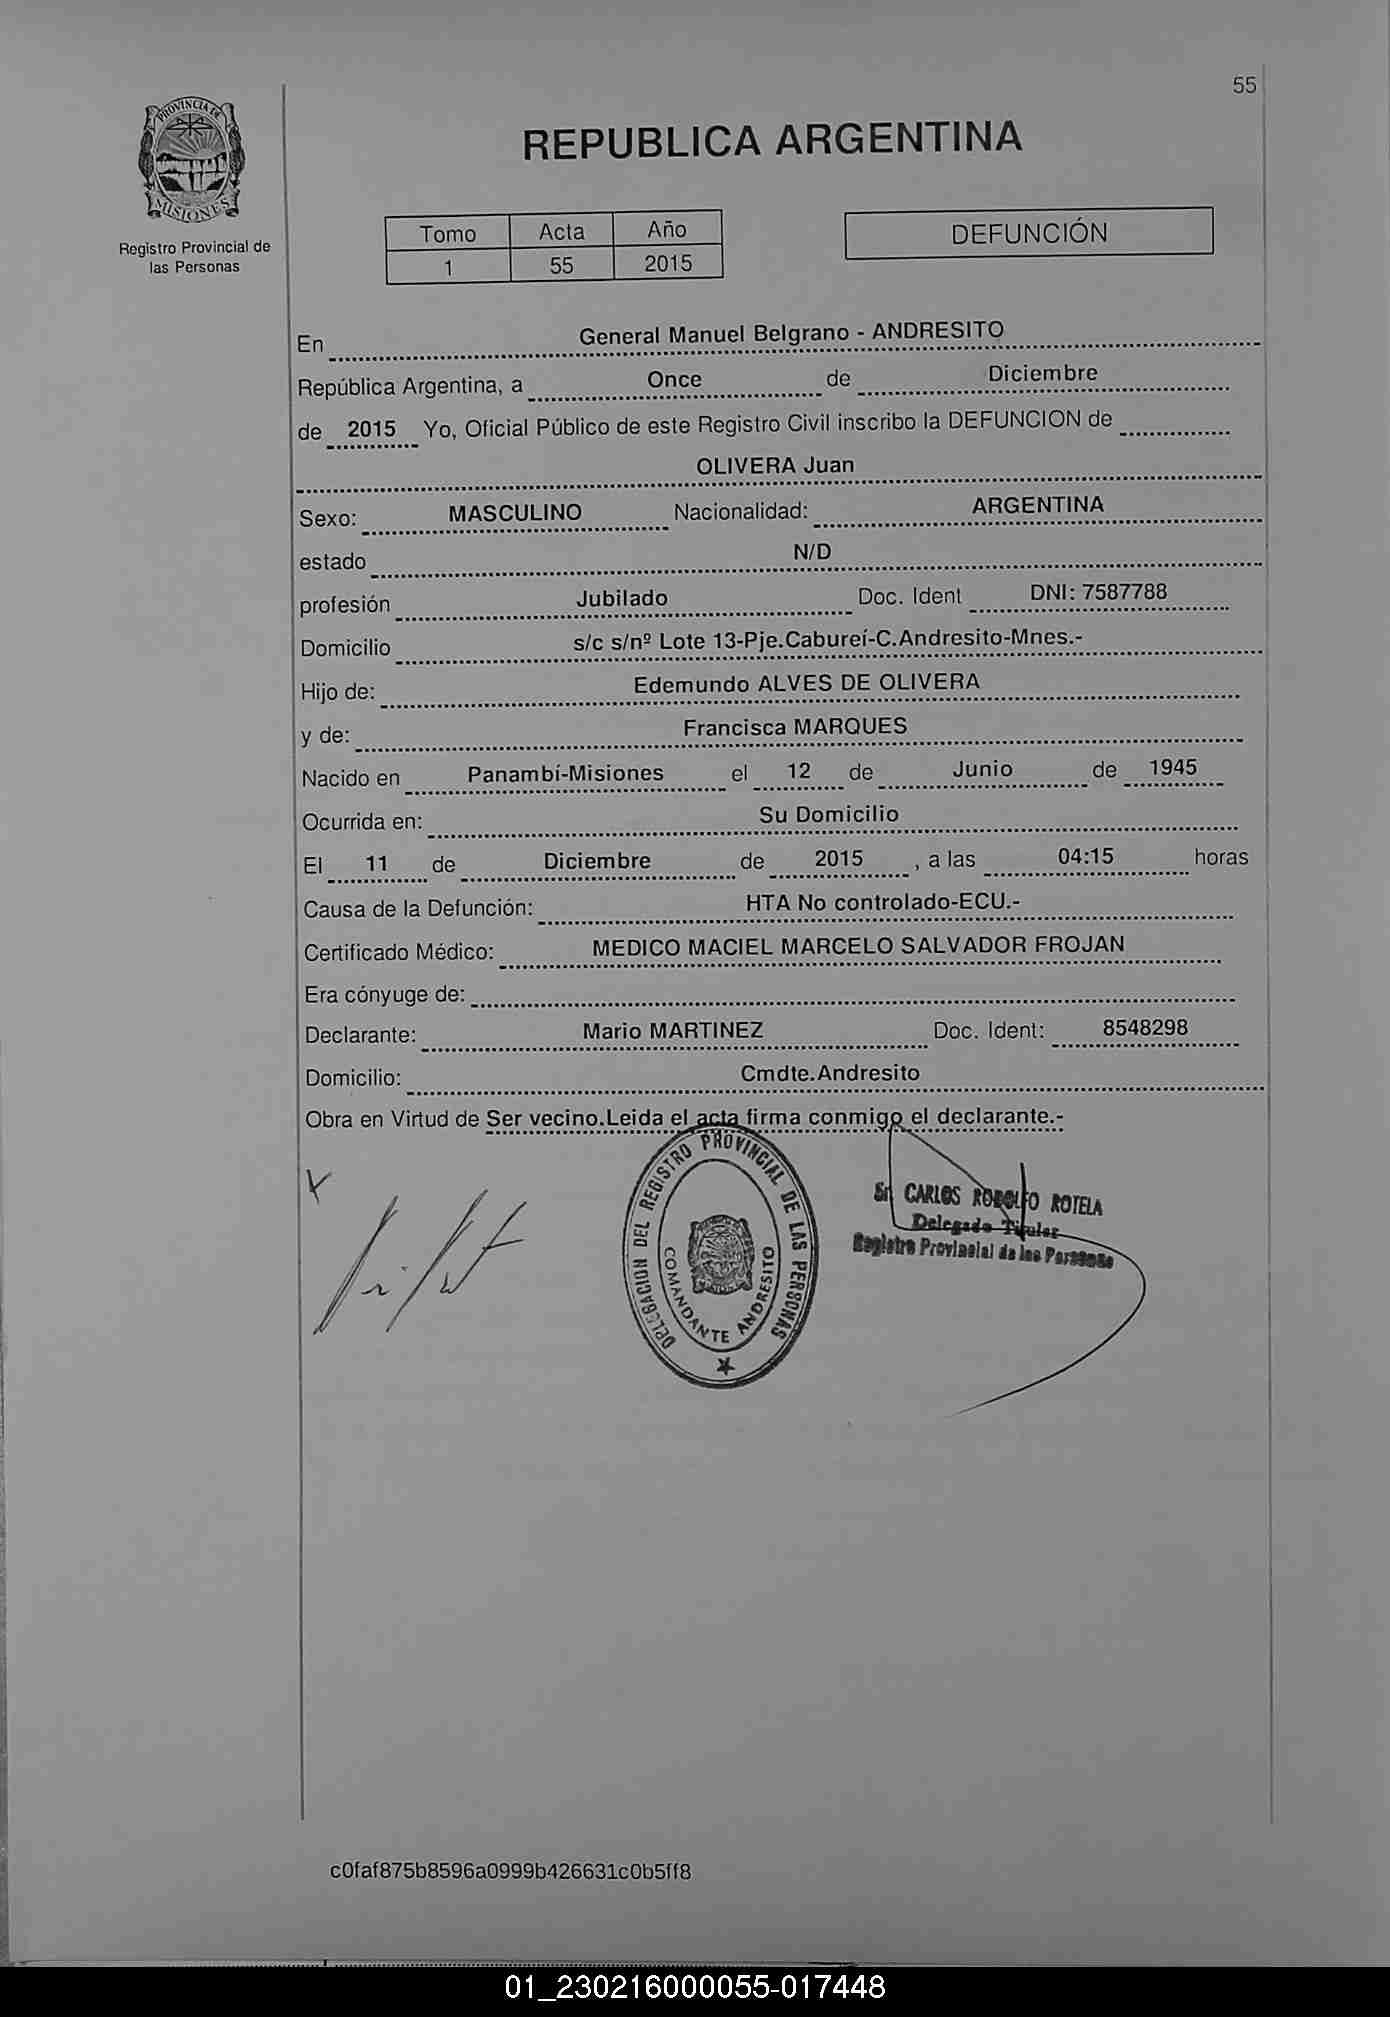 55
PROVINCIA DE
MISIONES
Registro Provincial de
las Personas
REPUBLICA ARGENTINA
Tomo Acta Año
1 55 2015
DEFUNCIÓN
En General Manuel Belgrano - ANDRESITO
República Argentina, a Once de Diciembre
de 2015 Yo, Oficial Público de este Registro Civil inscribo la DEFUNCION de
OLIVERA Juan
Sexo: MASCULINO Nacionalidad: ARGENTINA
estado N/D
profesión Jubilado Doc. Ident DNI: 7587788
Domicilio s/c s/nº Lote 13-Pje.Cabureí-C.Andresito-Mnes.-
Hijo de: Edemundo ALVES DE OLIVERA
y de: Francisca MARQUES
Nacido en Panambí-Misiones el 12 de Junio de 1945
Ocurrida en: Su Domicilio
El 11 de Diciembre de 2015 , a las 04:15 horas
Causa de la Defunción: HTA No controlado-ECU.-
Certificado Médico: MEDICO MACIEL MARCELO SALVADOR FROJAN
Era cónyuge de:
Declarante: Mario MARTINEZ Doc. Ident: 8548298
Domicilio: Cmdte.Andresito
Obra en Virtud de Ser vecino.Leida el acta firma conmigo el declarante.-
DELEGACION DEL REGISTRO PROVINCIAL DE LAS PERSONAS
COMANDANTE ANDRESITO
Sr. CARLOS RODOLFO ROTELA
Delegado Titular
Registro Provincial de las Personas
c0faf875b8596a0999b426631c0b5ff8
01_230216000055-017448